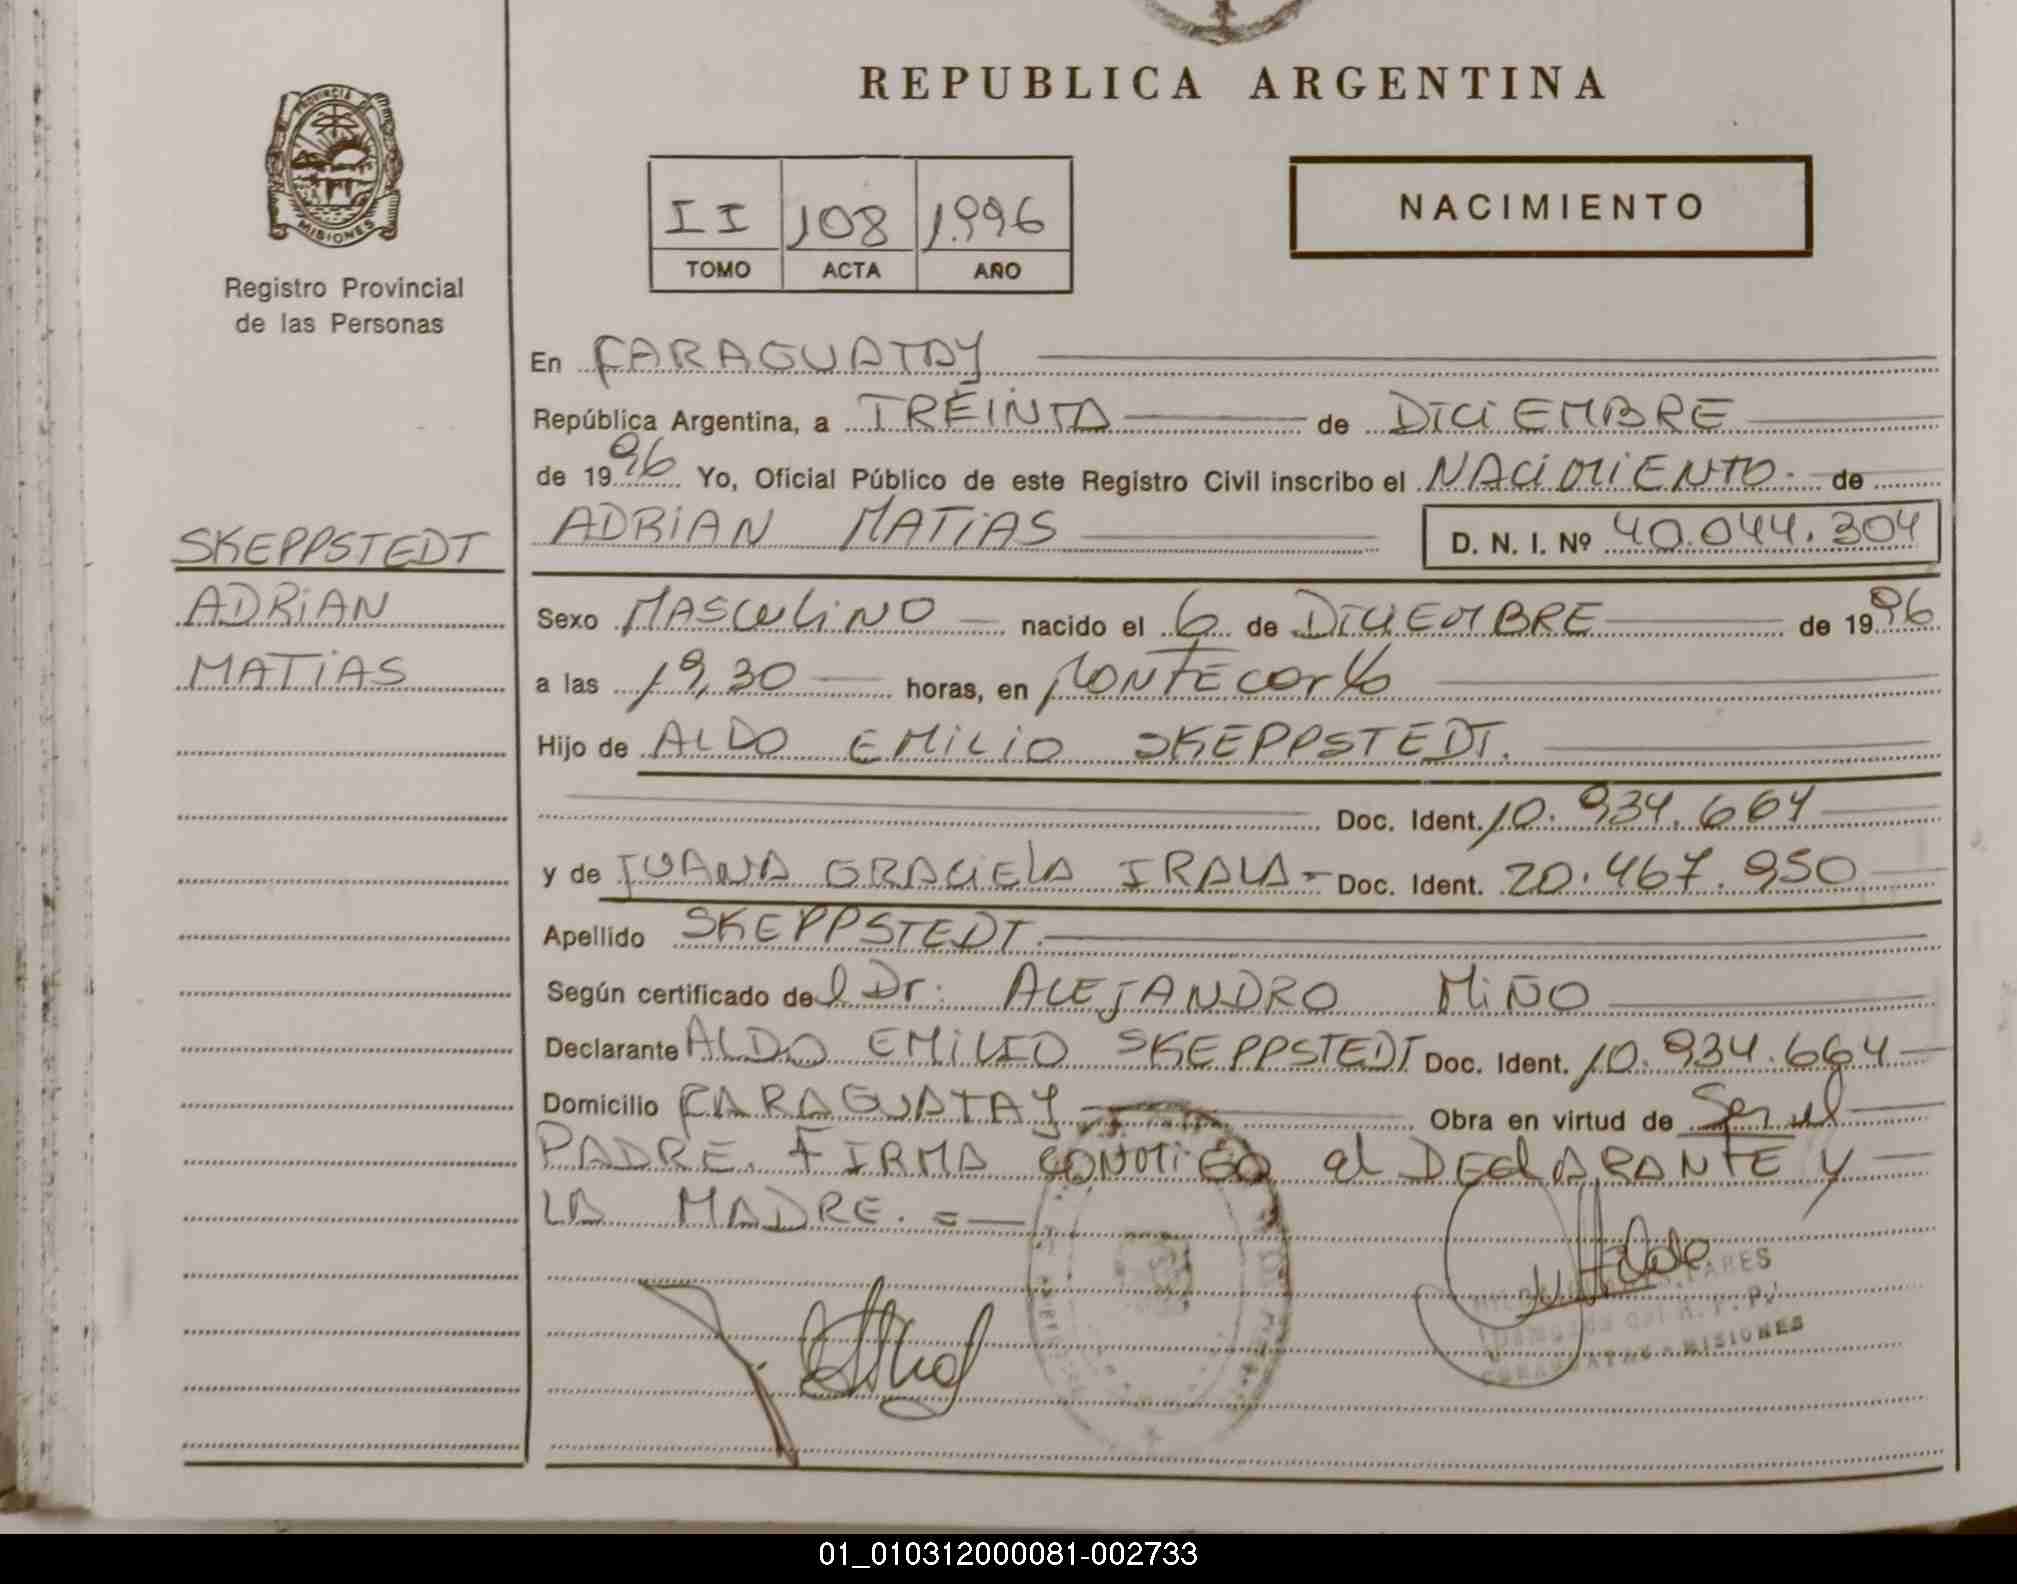 REPUBLICA ARGENTINA
PROVINCIA DE
MISIONES
Registro Provincial
de las Personas
II 108 1.996
TOMO ACTA AÑO
NACIMIENTO
En CARAGUATAY
República Argentina, a TREINTA de DICIEMBRE
de 1996 Yo, Oficial Público de este Registro Civil inscribo el NACIMIENTO de
ADRIAN MATIAS D. N. I. Nº 40.044.304
SKEPPSTEDT
ADRIAN
MATIAS
Sexo MASCULINO nacido el 6 de DICIEMBRE de 1996
a las 19,30 horas, en MONTECARLO
Hijo de ALDO EMILIO SKEPPSTEDT.
Doc. Ident. 10.934.664
y de JUANA GRACIELA IRALA- Doc. Ident. 20.467.950
Apellido SKEPPSTEDT.
Según certificado del Dr: ALEJANDRO MIÑO
Declarante ALDO EMILIO SKEPPSTEDT Doc. Ident. 10.934.664
Domicilio CARAGUATAY Obra en virtud de Ser el
PADRE. FIRMA CONMIGO el DEClARANTE Y
LA MADRE.=
MISIONES
01_010312000081-002733